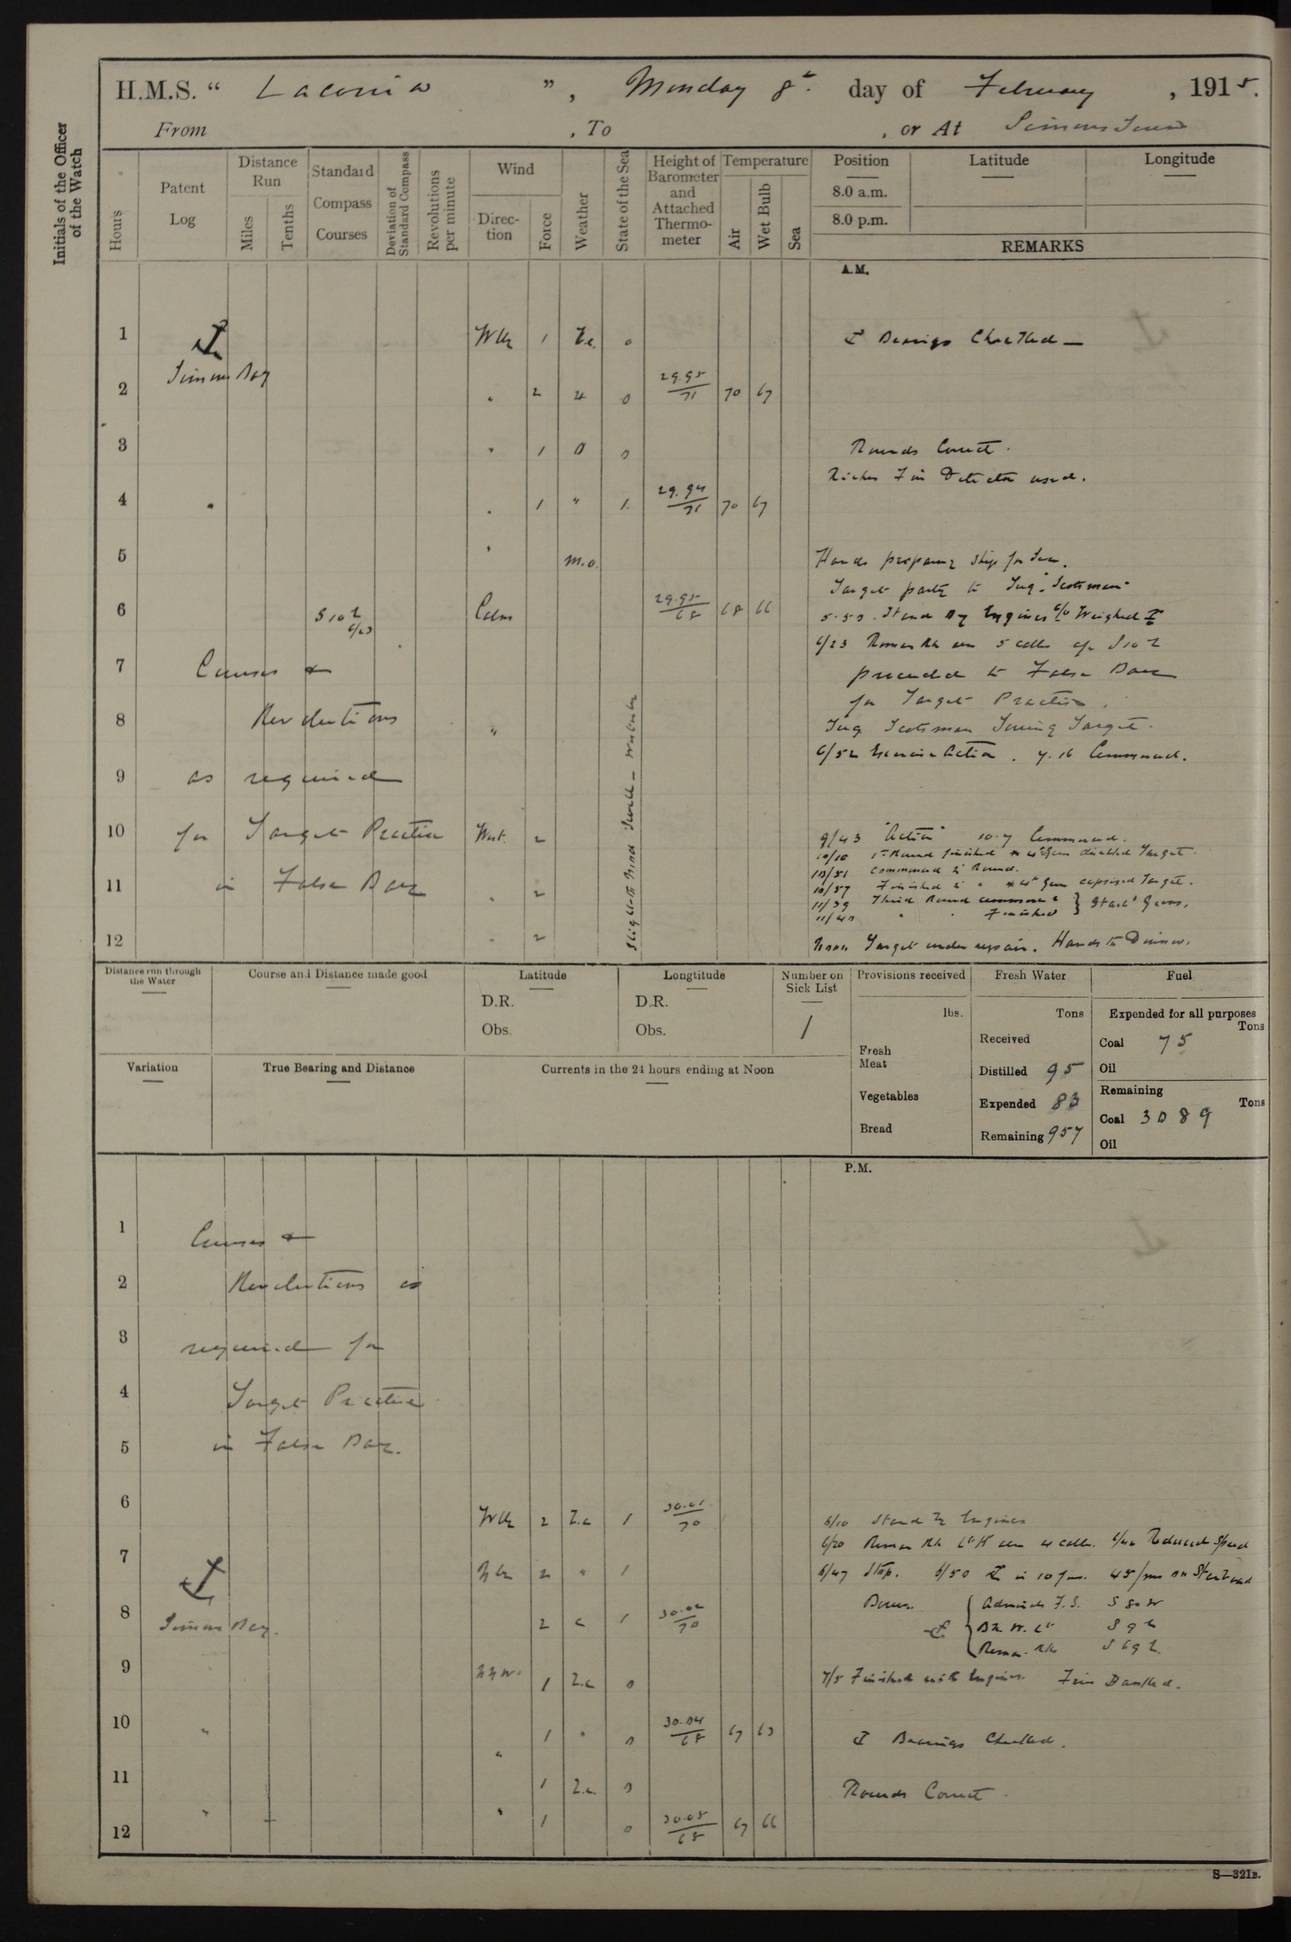 H.M.S. “ Laconia ”, Monday 8th day of February, 1915.
From , To , or At Simons Town
Initials of the Officer of the Watch
Hours
Patent Log
Distance Run
Miles
Tenths
Standard Compass Courses
Deviation of Standard Compass
Revolutions per minute
Wind
Direction
Force
Weather
State of the Sea
Height of Barometer and Attached Thermometer
Temperature
Air
Wet Bulb
Sea
Position
8.0 a.m.
8.0 p.m.
Latitude
Longitude
REMARKS
A.M.
1 1 o Bearings Checked
Simons Bay
2 " 2 o 29.95/71 70 67
3 " 1 o o Rounds Correct.
Fire Detector used.
4 " " 1 " 1 29.94/71 70 67
5 " m.o. Hands preparing ship for Sea.
Target party to Tug "Scotsman"
6 Calm 29.95/68 68 66 5.50. Stand by Engines 6/0 Weighed
6/23 Roman Rk 5 cables
7 Courses + proceeded to False Bay
for Target Practice.
8 Revolutions " Tug Scotsman Towing Target.
6/52 Exercise Action. 7.16 Command.
9 as required
Slight to Mod Swell
10 for Target Practice West 2 9/43 "Action" 10.7 Command.
10/16 1st Round finished 4" Gun disabled Target.
10/51 Command 2nd Round.
11 in False Bay " 2 10/57 Finished 2nd " 4" Gun capsized Target.
11/39 Third Round commence } Starbd Guns.
11/40 " " Finished
12 " 2 Noon Target under repair. Hands to Dinner.
Distance run through the Water
Course and Distance made good
Latitude
D.R.
Obs.
Longtitude
D.R.
Obs.
Number on Sick List
1
Provisions received
lbs.
Fresh Meat
Vegetables
Bread
Fresh Water
Tons
Received
Distilled 95
Expended 83
Remaining 957
Fuel
Expended for all purposes
Tons
Coal 75
Oil
Remaining
Tons
Coal 3089
Oil
Variation
True Bearing and Distance
Currents in the 24 hours ending at Noon
P.M.
1 Courses +
2 Revolutions as
3 required for
4 Target Practice
5 in False Bay.
6 2 1 30.01/70 6/10 Stand by Engines
6/20 Roman Rk 4 cables. Reduced Speed
7 2 " 1 6/47 Stop. 6/50 in 10 fms. 45 fms on Starboard
8 Simons Bay. 2 c 1 30.02/70 Bower. { Admirals F.S. S 80 W
Roman Rk
9 NNW. 1 o 7/5 Finished with Engines. Fires Banked.
10 " " 1 " o 30.04/68 67 63 Bearings Checked.
11 1 o Rounds Correct.
12 " " 1 o 30.05/68 67 66
S—321B.